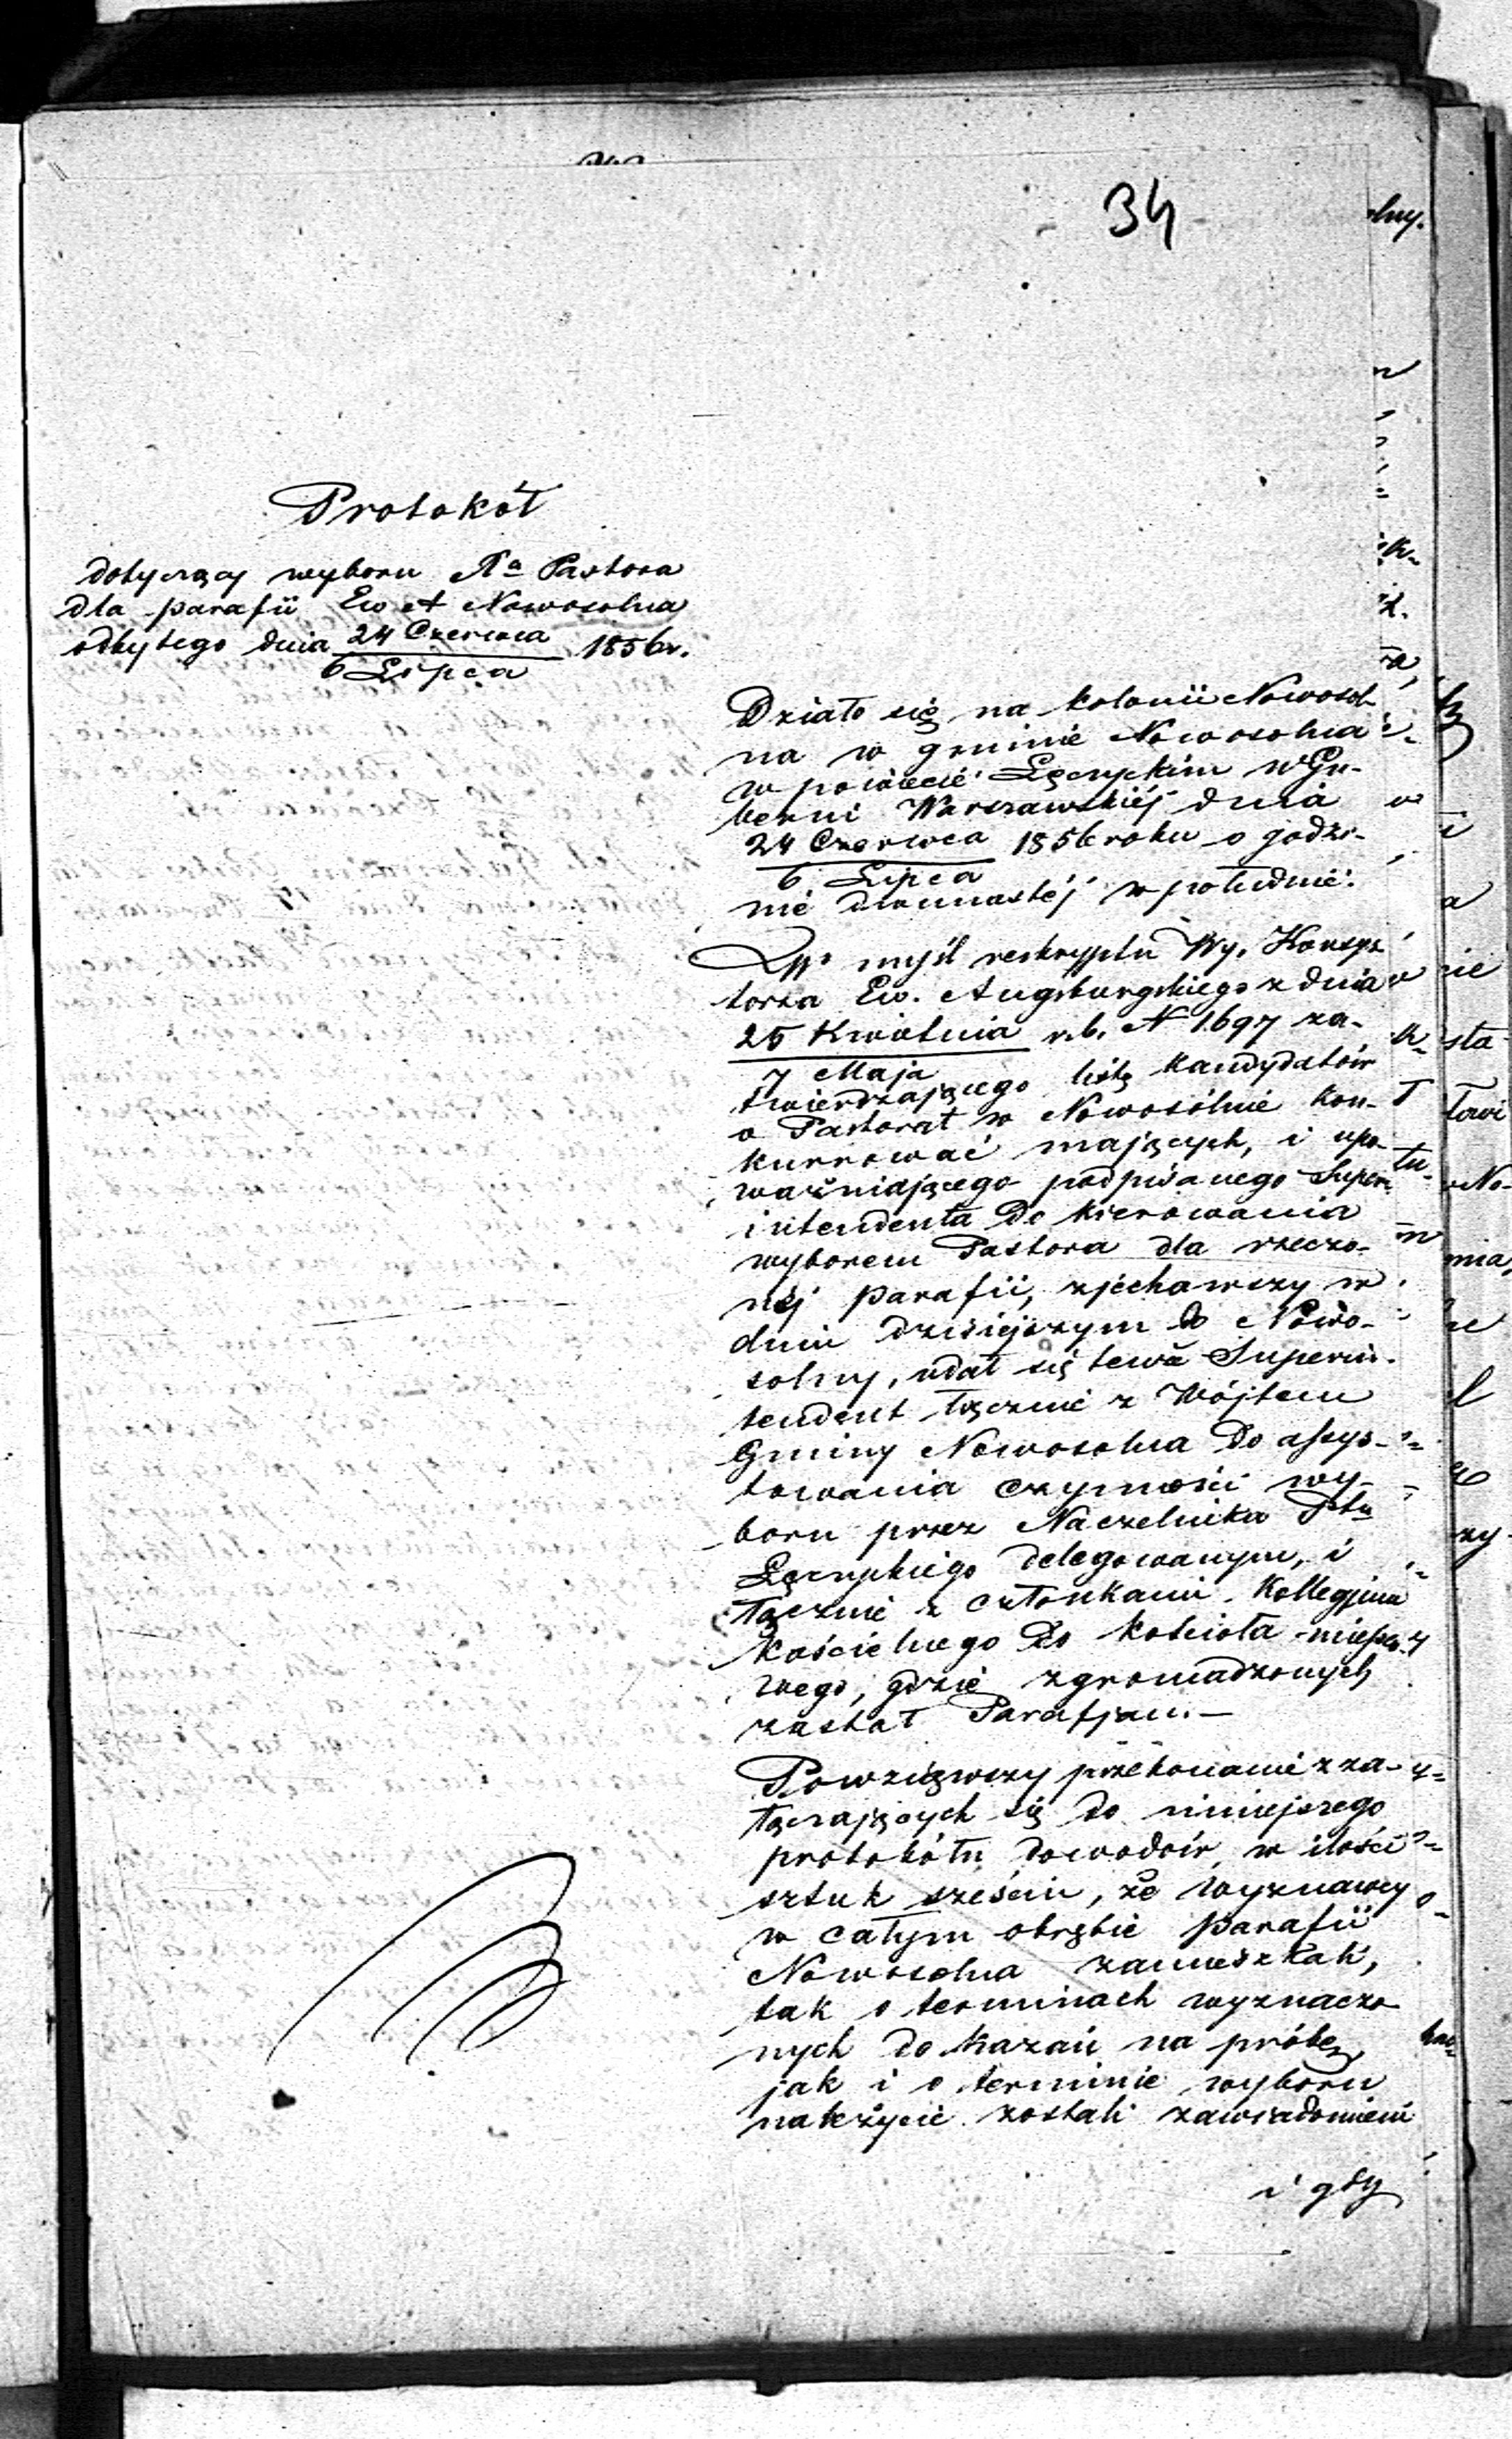 34
Protokół
dotyczący wyboru Xa Pastora
dla parafii Ew A Nowosolna
odbytego dnia 24 Czerwca 1856r.
6 Lipca
Działo się na kolonii Nowosol-
na w gminie Nowosolna
w powiecie Łęczyckim w Gu-
berni Warszawskiéj dnia
24 Czerwca 1856 roku o godzi-
6 Lipca
nie dwunastéj w południe.
W myśl reskryptu Wy. Konsys-
torza Ew. Augsburgskiego z dnia
25 Kwietnia r.b. N 1697 za-
7 Maja
twierdzającego listę kandydatów
o Pastorat w Nowosolnie kon-
kurrować mających, i upo-
ważniającego podpisanego Super-
intendenta do kierowania
wyborem Pastora dla rzeczo-
néj parafii, zjechawszy w
dniu dzisiejszym do Nowo-
solny, udał się tenże Superin-
tendent łącznie z Wójtem
Gminy Nowosolna do assys-
towania czynności wy-
boru przez Naczelnika Ptu
Łęczyckiego delegowanym, i
łącznie z członkami Kollegjum
kościelnego do kościoła miejsco-
wego, gdzie zgromadzonych
zastał Parafjan.—
Powziąwszy przekonanie z za-
łączających się do niniejszego
protokółu dowodów w ilości
sztuk sześciu, że wyznawcy
w całym obrębie parafii
Nowosolna zamieszkali,
tak o terminach wyznaczo
nych do kazań na próbę,
jak i o terminie wyboru
należycie zostali zawiadomieni
i gdy